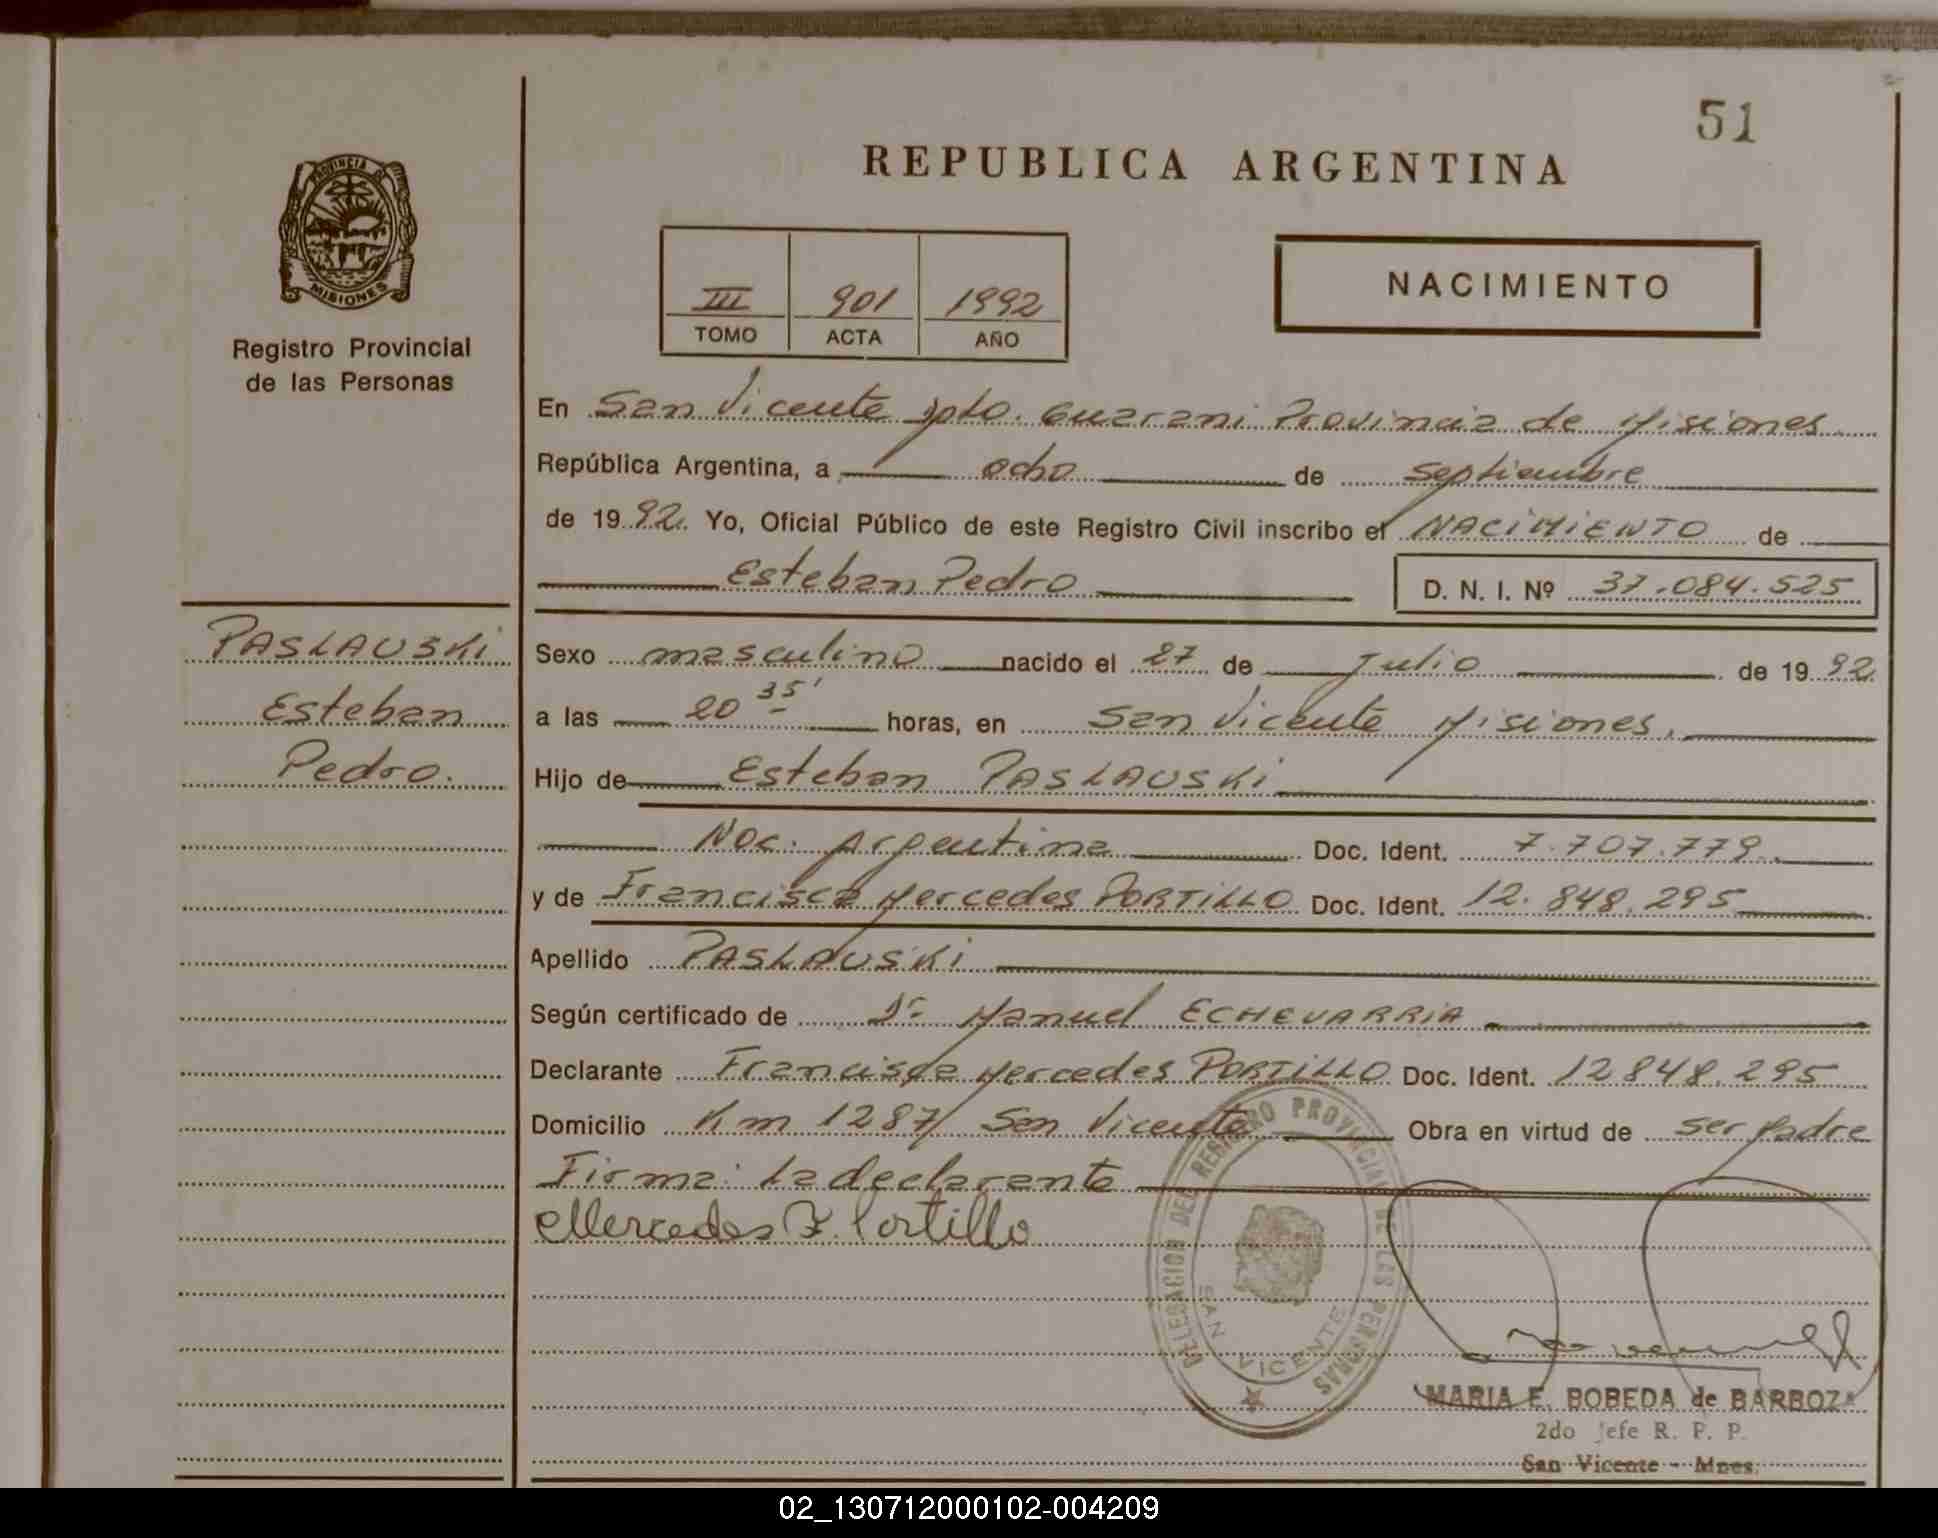 51
REPUBLICA ARGENTINA
PROVINCIA DE
MISIONES
Registro Provincial
de las Personas
III 901 1992
TOMO ACTA AÑO
NACIMIENTO
En San Vicente Dpto. Guarani Provincia de Misiones
República Argentina, a ocho de septiembre
de 1992. Yo, Oficial Público de este Registro Civil inscribo el NACIMIENTO de
Esteban Pedro D. N. I. Nº 37.084.525
PASLAUSKI
Esteban
Pedro.
Sexo masculino nacido el 27 de Julio de 1992
a las 20 35' horas, en San Vicente Misiones.
Hijo de Esteban PASLAUSKI
Nac. Argentina Doc. Ident. 7.707.779.
y de Francisca Mercedes PORTILLO Doc. Ident. 12.848.295
Apellido PASLAUSKI
Según certificado de Dr Manuel ECHEVARRIA
Declarante Francisca Mercedes PORTILLO Doc. Ident. 12848.295
Domicilio Km 1287 San Vicente Obra en virtud de ser padre
Firma: La declarante
Mercedes F. Portillo
DELEGACION DEL REGISTRO PROVINCIAL DE LAS PERSONAS
SAN VICENTE
MARIA E. BOBEDA de BARBOZA
2do Jefe R. P. P.
San Vicente - Mnes.
02_130712000102-004209